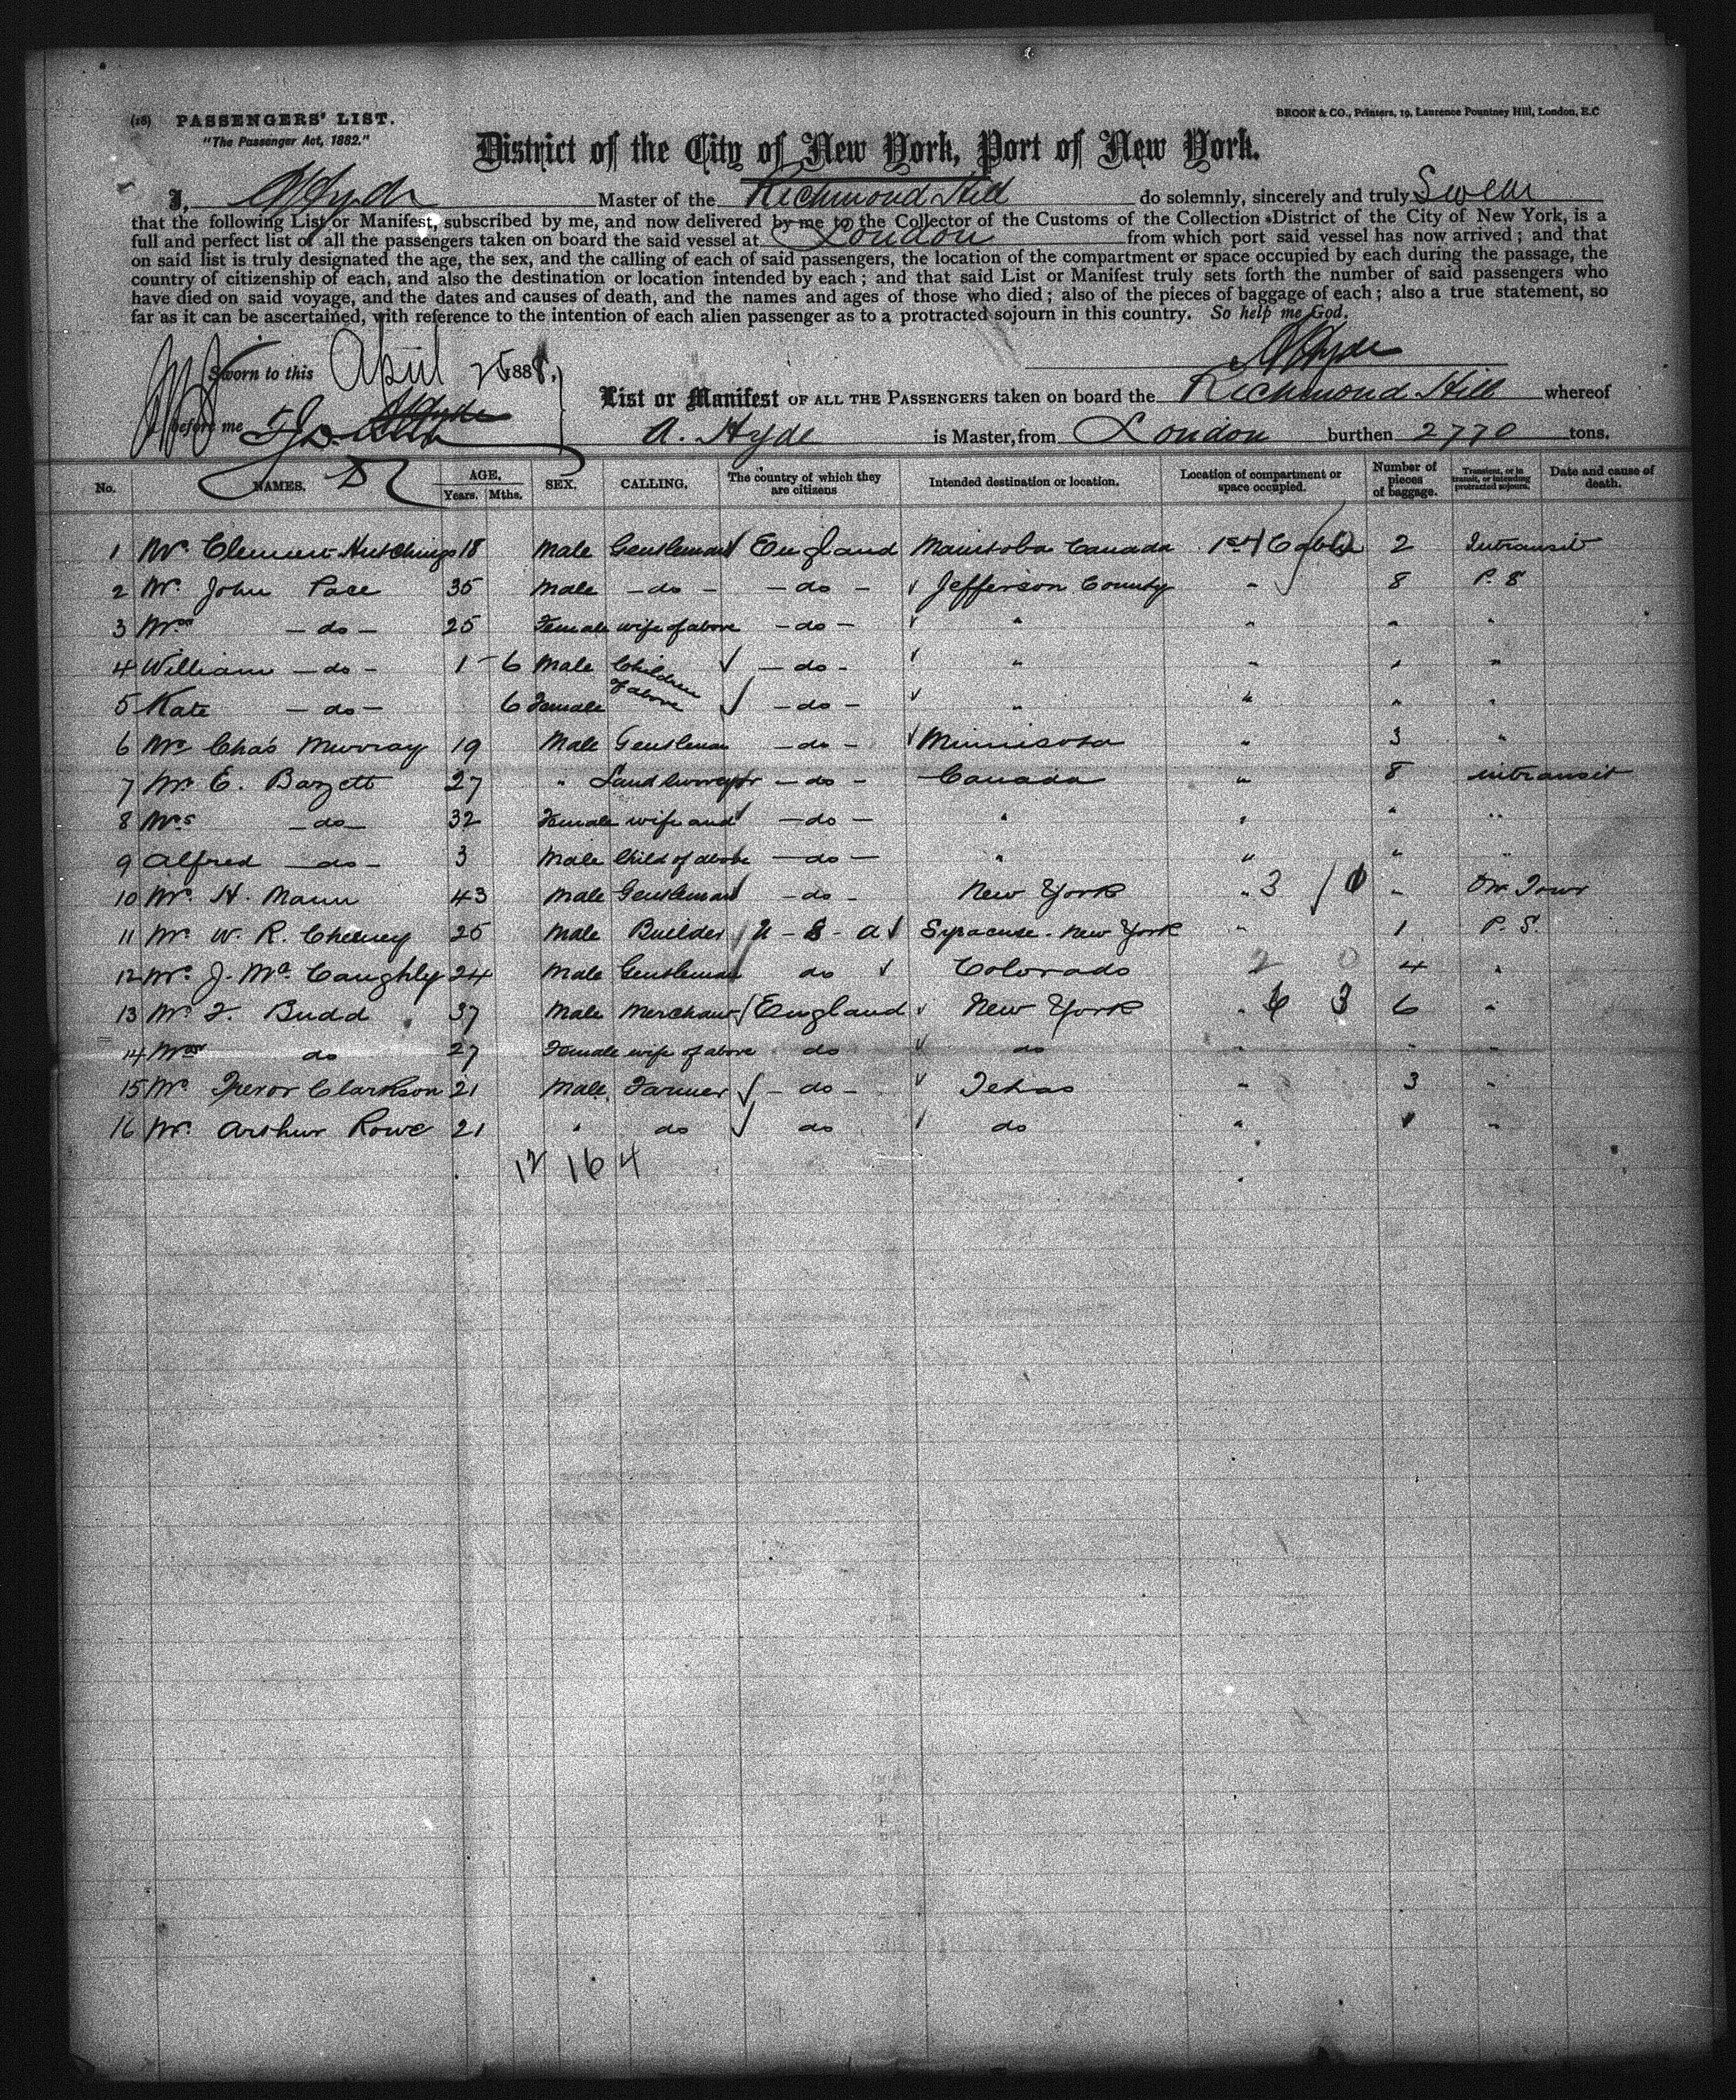 (16) PASSENGERS' LIST.
"The Passenger Act, 1882."
BROOK & CO., Printers, 19, Laurence Pountney Hill, London, E.C
District of the City of New York, Port of New York.
I, A Hyde Master of the Richmond Hill do solemnly, sincerely and truly Swear
that the following List or Manifest, subscribed by me, and now delivered by me to the Collector of the Customs of the Collection District of the City of New York, is a
full and perfect list of all the passengers taken on board the said vessel at London from which port said vessel has now arrived; and that
on said list is truly designated the age, the sex, and the calling of each of said passengers, the location of the compartment or space occupied by each during the passage, the
country of citizenship of each, and also the destination or location intended by each; and that said List or Manifest truly sets forth the number of said passengers who
have died on said voyage, and the dates and causes of death, and the names and ages of those who died; also of the pieces of baggage of each; also a true statement, so
far as it can be ascertained, with reference to the intention of each alien passenger as to a protracted sojourn in this country. So help me God.
A Hyde
Sworn to this April 25 1888,
before me
List or Manifest OF ALL THE PASSENGERS taken on board the Richmond Hill whereof
A. Hyde is Master, from London burthen 2770 tons.
No. NAMES. AGE, Years. Mths. SEX. CALLING, The country of which they are citizens Intended destination or location. Location of compartment or space occupied. Number of pieces of baggage. Transient, or in transit, or intending protracted sojourn. Date and cause of death.
1 Mr. Clement Hutchings 18 Male Gentleman England Manitoba Canada 1st Cabin 2 Intransit
2 Mr. John Pace 35 Male - do - - do - Jefferson County " 8 P. S
3 Mrs - do - 25 Female wife of above - do - " " " "
4 William - do - 1 - 6 Male Children of above - do - " " " "
5 Kate - do - 6 Female - do - " " " "
6 Mr Chas Murray 19 Male Gentleman - do - Minnisota " 3 "
7 Mr E. Bazett 27 " Land surveyor - do - Canada " 8 intransit
8 Mrs - do - 32 Female wife and - do - " " " "
9 Alfred - do - 3 Male Child of above - do - " " " "
10 Mr. H. Mann 43 Male Gentleman - do - New York " 3 / 0 " On Tour
11 Mr W. R. Cheney 25 Male Builder U - S - A Syracuse - New York " 1 P. S.
12 Mr. J. Mc Caughly 24 Male Gentleman do Colorado 2 0 4 "
13 Mr F. Budd 37 Male Merchant England New York " 6 3 6 "
14 Mrs do 27 Female wife of above do do " " "
15 Mr Trevor Clarkson 21 Male Farmer - do - Texas " 3 "
16 Mr. Arthur Rowe 21 " do do do " "
12 16 4